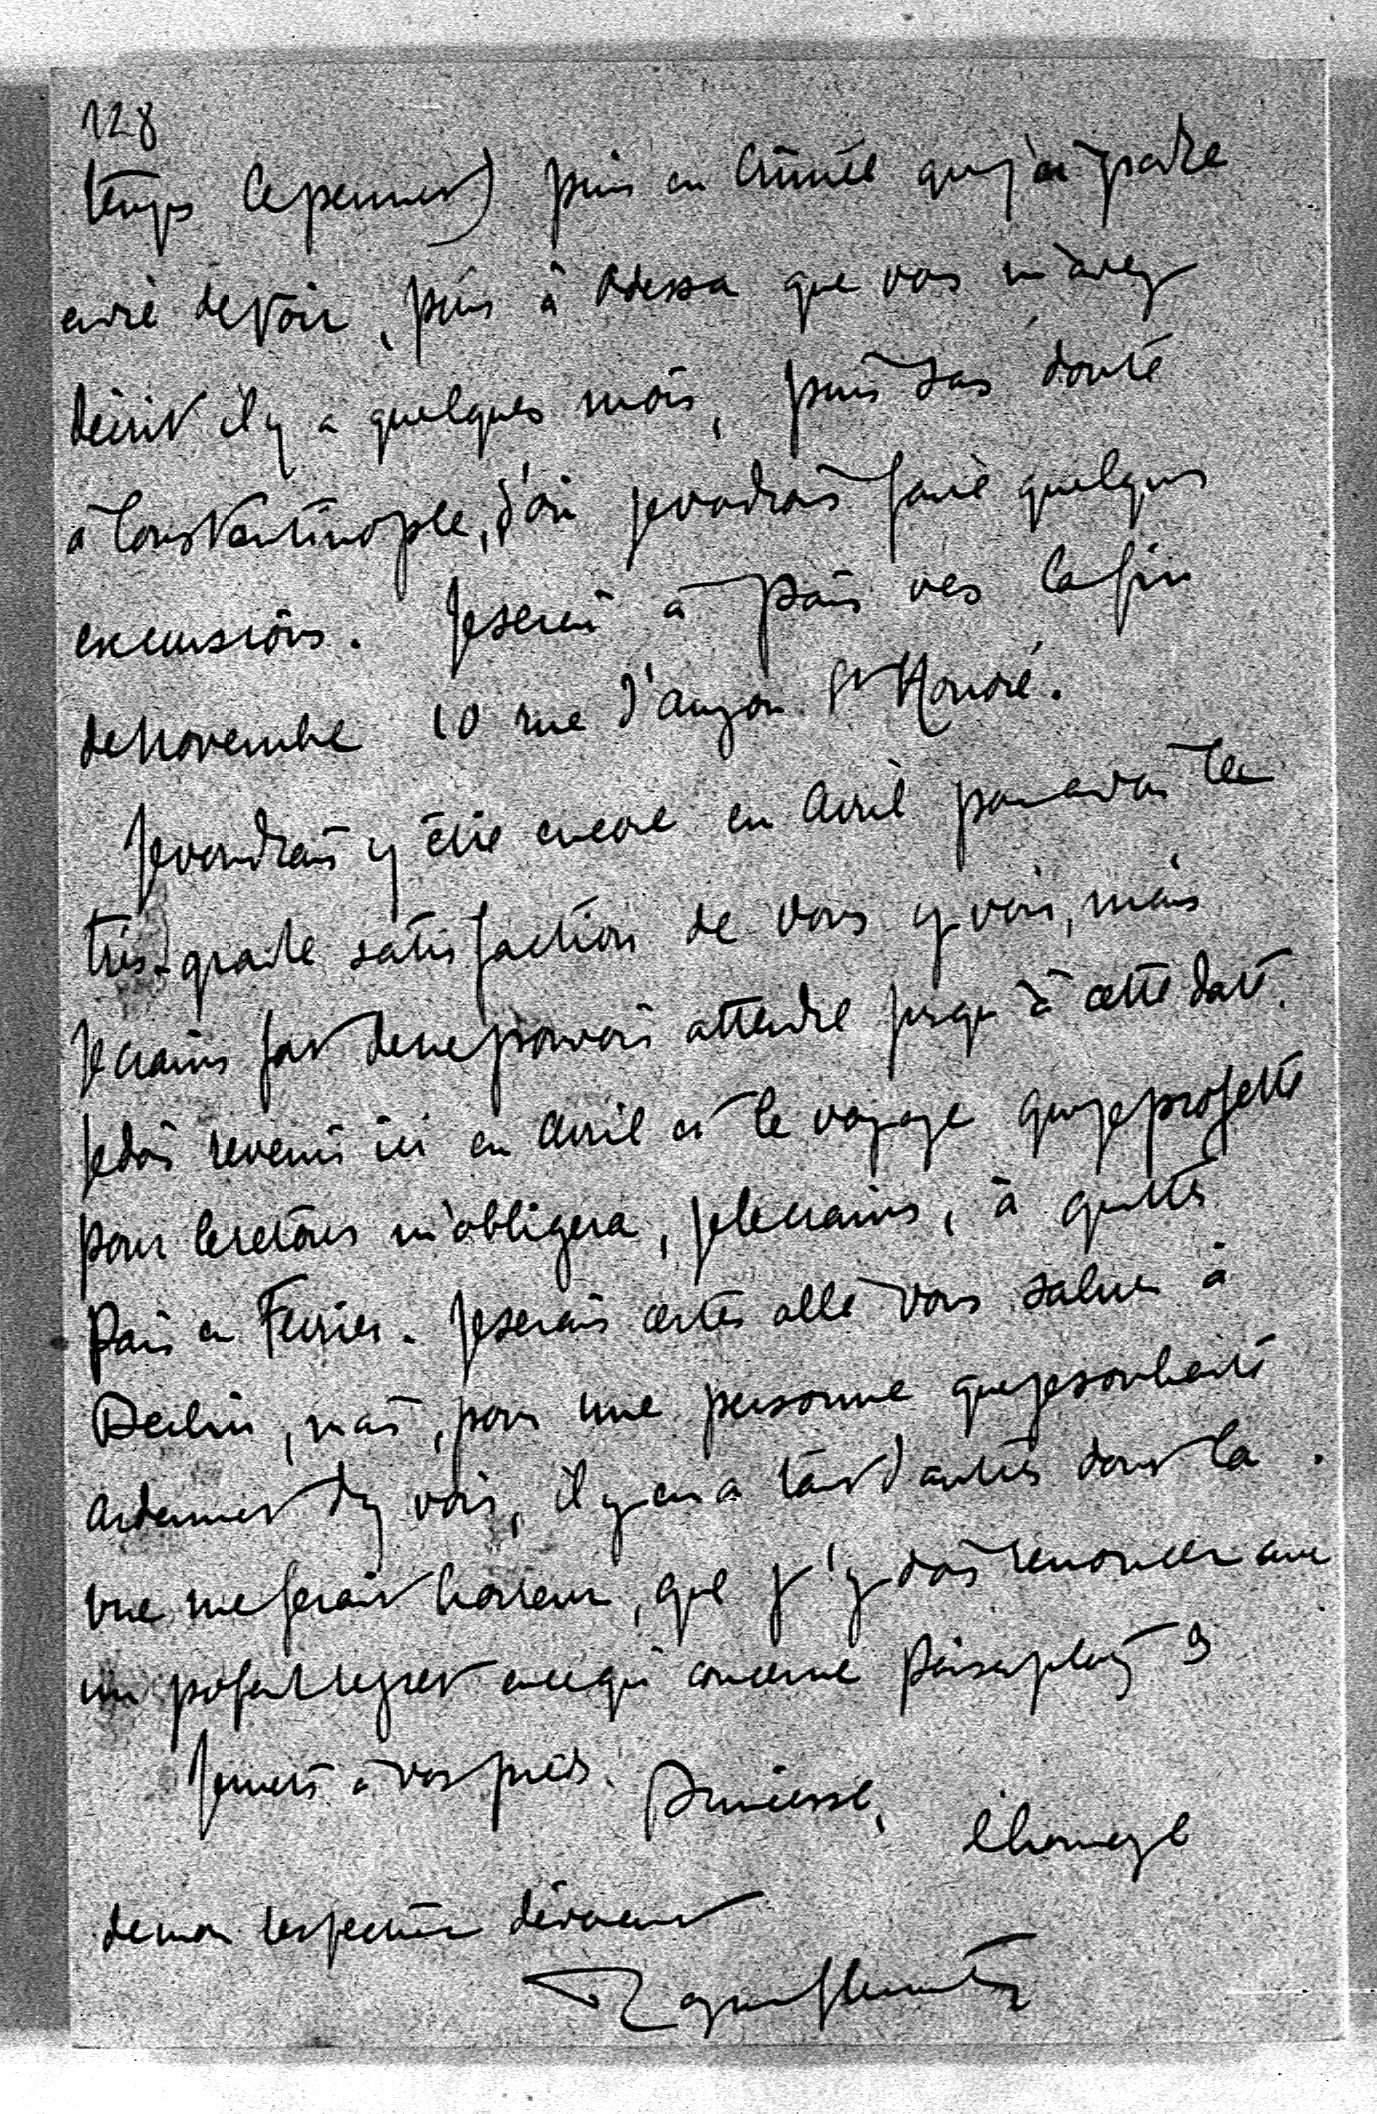 128
temps le permet) puis en Crimée que j'ai grande
envie de voir, puis à Odessa que vous m'avez
décrit il y a quelques mois, puis sans doute
à Constantinople, d'où je voudrais faire quelques
excursions. Je serai à Paris vers la fin
de Novembre 10 rue d'Anjou St Honoré.
Je voudrais y être encore en Avril pour avoir la
très grande satisfaction de vous y voir, mais
je crains fort de ne pouvoir attendre jusqu'à cette date.
Je dois revenir ici en Avril et le voyage que je projette
pour le retour m'obligera, je le crains, à quitter
Paris en Février. Je serais certes allé vous saluer à
Berlin, mais, pour une personne que je souhaite
ardemment d'y voir, il y en a tant d'autres dont la
vue me ferait horreur, que j'y dois renoncer avec
un profond regret en ce qui concerne
Je mets à vos pieds, Princesse, l'hommage
de mon respectueux dévouement